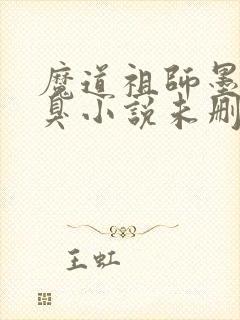 魔道祖師墨
臭小説未刪
王虹